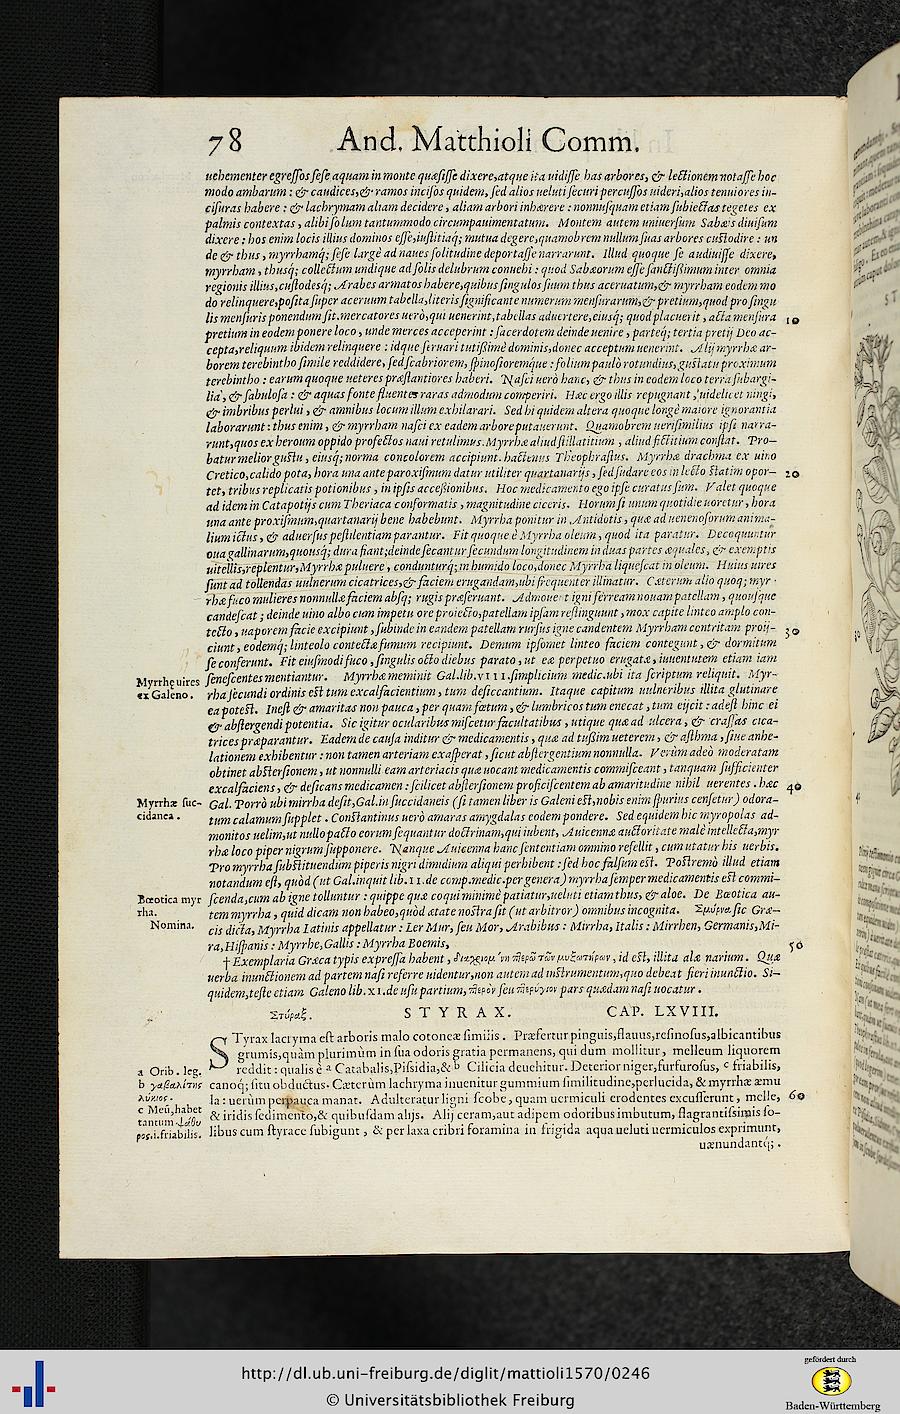 78 And. Matthioli Comm.
uehementer egressos sese aquam in monte quæsisse dixere, atque ita uidisse has arbores, & lectionem notasse hoc
modo ambarum : & caudices, & ramos incisos quidem, sed alios ueluti securi percussos uideri, alios tenuiores in-
cisuras habere : & lachrymam aliam decidere, aliam arbori inhærere : nonnusquam etiam subiectas tegetes ex
palmis contextas, alibi solum tantummodo circumpauimentatum. Montem autem uniuersum Sabæis diuisum
dixere : hos enim locis illius dominos esse, iustitiaq; mutua degere, quamobrem nullum suas arbores custodire : un
de & thus, myrrhamq; sese largè ad naues solitudine deportasse narrarunt. Illud quoque se audiuisse dixere,
myrrham, thusq; collectum undique ad solis delubrum conuehi : quod Sabæorum esse sanctissimum inter omnia
regionis illius, custodesq; Arabes armatos habere, quibus singulos suum thus aceruatum, & myrrham eodem mo
do relinquere, posita super aceruum tabella, literis significante numerum mensurarum, & pretium, quod pro singu
lis mensuris ponendum sit. mercatores uerò, qui uenerint, tabellas aduertere, eiusq; quod placuerit, acta mensura 10
pretium in eodem ponere loco, unde merces acceperint : sacerdotem deinde uenire, parteq; tertia pretij Deo ac-
cepta, reliquum ibidem relinquere : idque seruari tutissimè dominis, donec acceptum uenerint. Alij myrrhæ ar-
borem terebintho simile reddidere, sed scabriorem, spinosioremque : folium paulò rotundius, gustatu proximum
terebintho : earum quoque ueteres præstantiores haberi. Nasci uerò hanc, & thus in eodem loco terra subargi-
lia, & sabulosa : & aquas fonte fluentes raras admodum comperiri. Hæc ergo illis repugnant, uidelicet ningi,
& imbribus perlui, & amnibus locum illum exhilarari. Sed hi quidem altera quoque longè maiore ignorantia
laborarunt : thus enim, & myrrham nasci ex eadem arbore putauerunt. Quamobrem uerisimilius ipsi narra-
runt, quos ex heroum oppido profectos naui retulimus. Myrrhæ aliud stillatitium, aliud fictitium constat. Pro-
batur melior gustu, eiusq; norma concolorem accipiunt. hactenus Theophrastus. Myrrhæ drachma ex uino
Cretico, calido pota, hora una ante paroxismum datur utiliter quartanarijs, sed sudare eos in lecto statim opor- 20
tet, tribus replicatis potionibus, in ipsis accessionibus. Hoc medicamento ego ipse curatus sum. Valet quoque
ad idem in Catapotijs cum Theriaca conformatis, magnitudine ciceris. Horum si unum quotidie uoretur, hora
una ante proxismum, quartanarij bene habebunt. Myrrha ponitur in Antidotis, quæ ad uenenosorum anima-
lium ictus, & aduersus pestilentiam parantur. Fit quoque è Myrrha oleum, quod ita paratur. Decoquuntur
oua gallinarum, quousq; dura fiant; deinde secantur secundum longitudinem in duas partes æquales, & exemptis
uitellis, replentur, Myrrhæ puluere, condunturq; in humido loco, donec Myrrha liquescat in oleum. Huius uires
sunt ad tollendas uulnerum cicatrices, & faciem erugandam, ubi frequenter illinatur. Cæterum alio quoq; myr-
rhæ fuco mulieres nonnullæ faciem absq; rugis præseruant. Admouent igni ferream nouam patellam, quousque
candescat ; deinde uino albo cum impetu ore proiecto, patellam ipsam restingunt, mox capite linteo amplo con-
tecto, uaporem facie excipiunt, subinde in eandem patellam rursus igne candentem Myrrham contritam proij- 30
ciunt, eodemq; linteolo contectæ fumum recipiunt. Demum ipsomet linteo faciem contegunt, & dormitum
se conferunt. Fit eiusmodi fuco, singulis octo diebus parato, ut eæ perpetuo erugatæ, iuuentutem etiam iam
Myrrhę uires senescentes mentiantur. Myrrhæ meminit Gal. lib. VIII. simplicium medic. ubi ita scriptum reliquit. Myr-
ex Galeno. rha secundi ordinis est tum excalfacientium, tum desiccantium. Itaque capitum uulneribus illita glutinare
ea potest. Inest & amaritas non pauca, per quam fœtum, & lumbricos tum enecat, tum eijcit : adest hinc ei
& abstergendi potentia. Sic igitur ocularibus miscetur facultatibus, utique quæ ad ulcera, & crassas cica-
trices præparantur. Eadem de causa inditur & medicamentis, quæ ad tussim ueterem, & asthma, siue anhe-
lationem exhibentur : non tamen arteriam exasperat, sicut abstergentium nonnulla. Verùm adeò moderatam
obtinet abstersionem, ut nonnulli eam arteriacis quæ uocant medicamentis commisceant, tanquam sufficienter
excalfaciens, & desicans medicamen : scilicet abstersionem proficiscentem ab amaritudine nihil uerentes. hæc 40
Myrrhæ suc- Gal. Porrò ubi mirrha desit, Gal. in succidaneis (si tamen liber is Galeni est, nobis enim spurius censetur) odora-
cidanea. tum calamum supplet. Constantinus uerò amaras amygdalas eodem pondere. Sed equidem hic myropolas ad-
monitos uelim, ut nullo pacto eorum sequantur doctrinam, qui iubent, Auicennæ auctoritate malè intellecta, myr
rhæ loco piper nigrum supponere. Nanque Auicenna hanc sententiam omnino refellit, cum utatur his uerbis.
Pro myrrha substituendum piperis nigri dimidium aliqui perhibent : sed hoc falsum est. Postremò illud etiam
notandum est, quòd (ut Gal. inquit lib. 11. de comp. medic. per genera) myrrha semper medicamentis est commi-
Bœotica myr scenda, cum ab igne tolluntur : quippe quæ coqui minimè patiatur, ueluti etiam thus, & aloe. De Bœotica au-
rha. tem myrrha, quid dicam non habeo, quòd ætate nostra sit (ut arbitror) omnibus incognita. Σμύρνα sic Græ-
Nomina. cis dicta, Myrrha Latinis appellatur : Ler Mur, seu Mor, Arabibus : Mirrha, Italis : Mirrhen, Germanis, Mi-
ra, Hispanis : Myrrhe, Gallis : Myrrha Boemis, 50
† Exemplaria Græca typis expressa habent, διαχριομένη πτερῷ τῶν μυξωτήρων, id est, illita alæ narium. Quæ
uerba inunctionem ad partem nasi referre uidentur, non autem ad instrumentum, quo debeat fieri inunctio. Si-
quidem, teste etiam Galeno lib. XI. de usu partium, πτερὸν seu πτερύγιον pars quædam nasi uocatur.
Στύραξ. STYRAX. CAP. LXVIII.
STyrax lacryma est arboris malo cotoneæ similis. Præfertur pinguis, flauus, resinosus, albicantibus
grumis, quàm plurimùm in sua odoris gratia permanens, qui dum mollitur, melleum liquorem
a Orib. leg. reddit : qualis è a Catabalis, Pissidia, & b Cilicia deuehitur. Deterior niger, furfurosus, c friabilis,
b γαβαλίτης canoq; situ obductus. Cæterùm lachryma inuenitur gummium similitudine, perlucida, & myrrhæ æmu
λύκιος. la : uerùm perpauca manat. Adulteratur ligni scobe, quam uermiculi erodentes excusserunt, melle, 60
c Meū, habet & iridis sedimento, & quibusdam alijs. Alij ceram, aut adipem odoribus imbutum, flagrantissimis so-
tantum ψαθυ libus cum styrace subigunt, & per laxa cribri foramina in frigida aqua ueluti uermiculos exprimunt,
ρος. i. friabilis. uænundantq;.
http://dl.ub.uni-freiburg.de/diglit/mattioli1570/0246
© Universitätsbibliothek Freiburg
gefördert durch
Baden-Württemberg